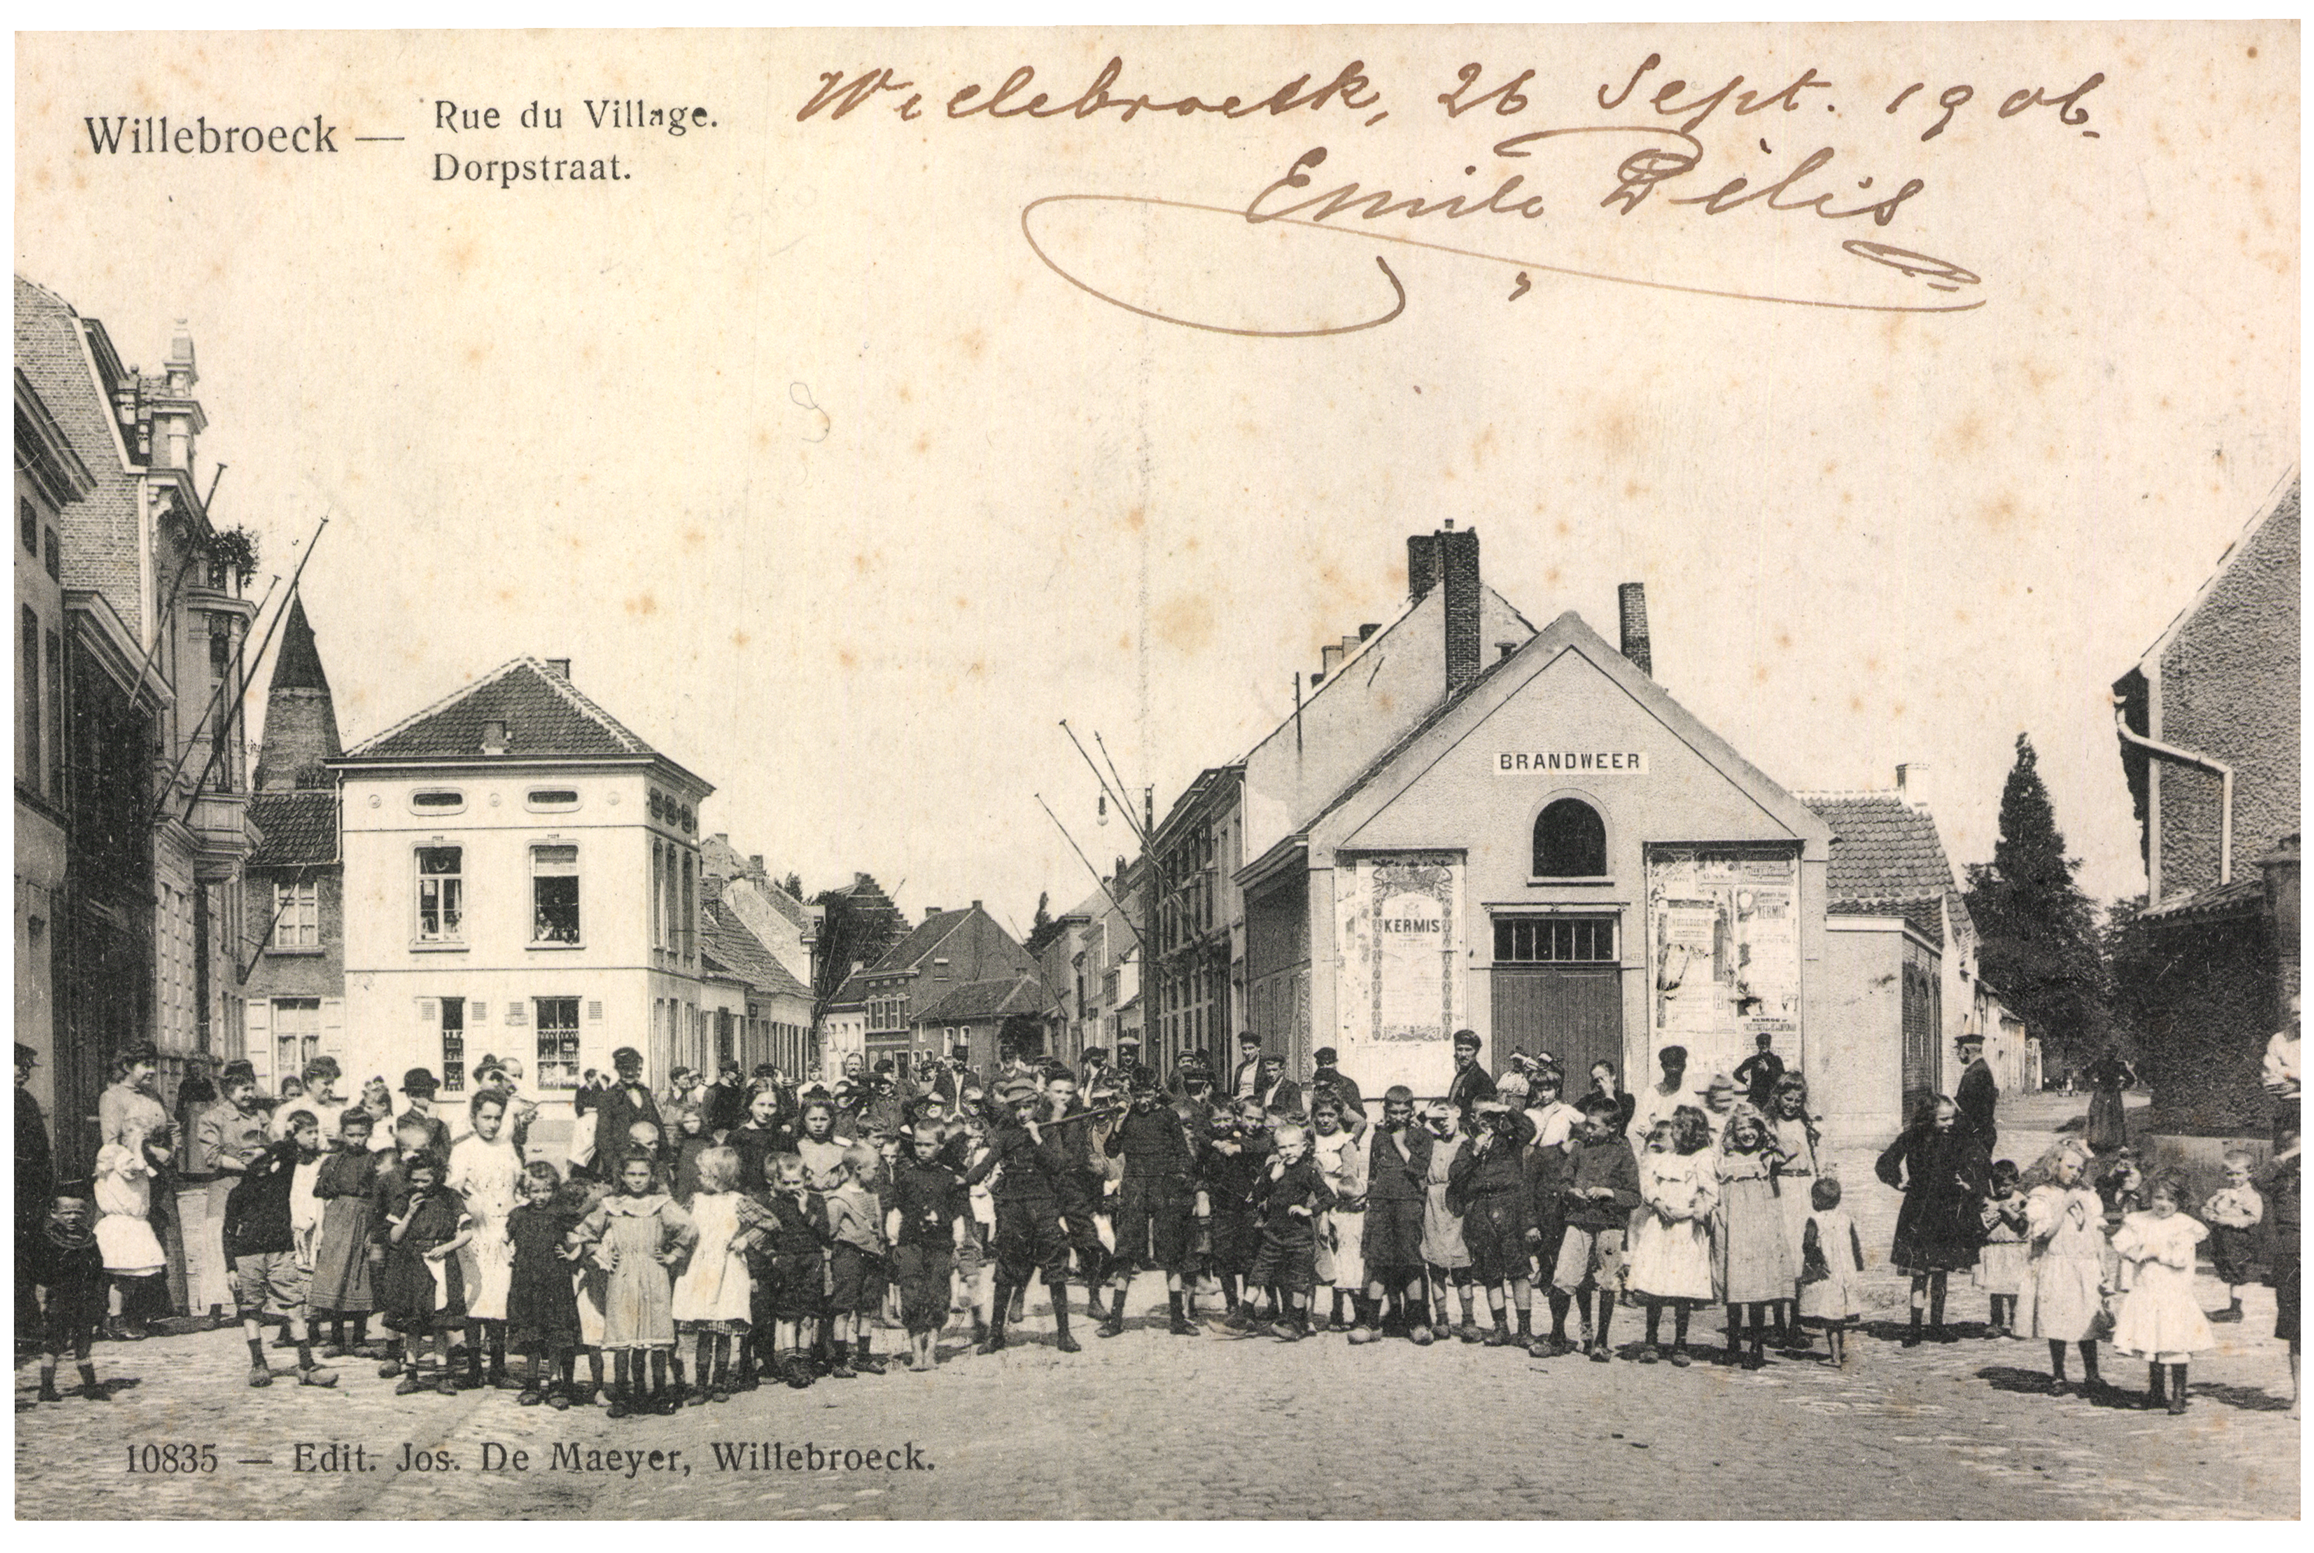 Willebroeck — Rue du Village.
Dorpstraat.
Willebroeck, 26 Sept. 1906.
Emile Pelis
BRANDWEER
KERMIS
KERMIS
10835 — Edit. Jos. De Maeyer, Willebroeck.